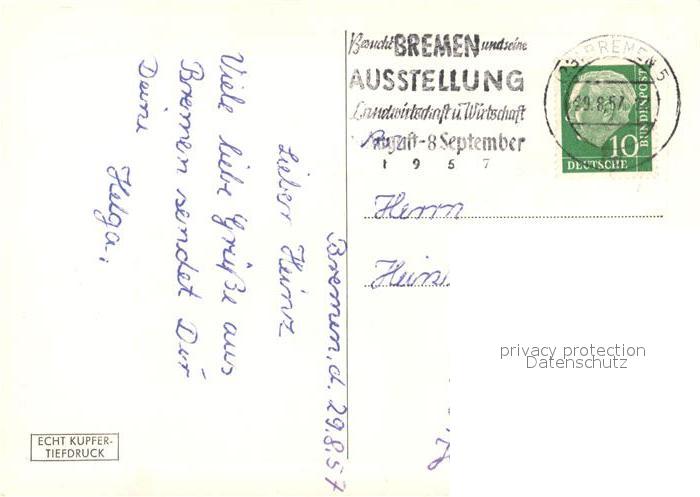 Bremen, d. 29.8.57
Lieber Heinz
Viele liebe Grüße aus
Bremen sendet Dir
Deine
Helga.
ECHT KUPFER-
TIEFDRUCK
Besucht BREMEN und seine
AUSSTELLUNG
Landwirtschaft u. Wirtschaft
August-8 September
1957
BREMEN 5
29.8.57
10
DEUTSCHE
BUNDESPOST
Herrn
Heinz
privacy protection
Datenschutz